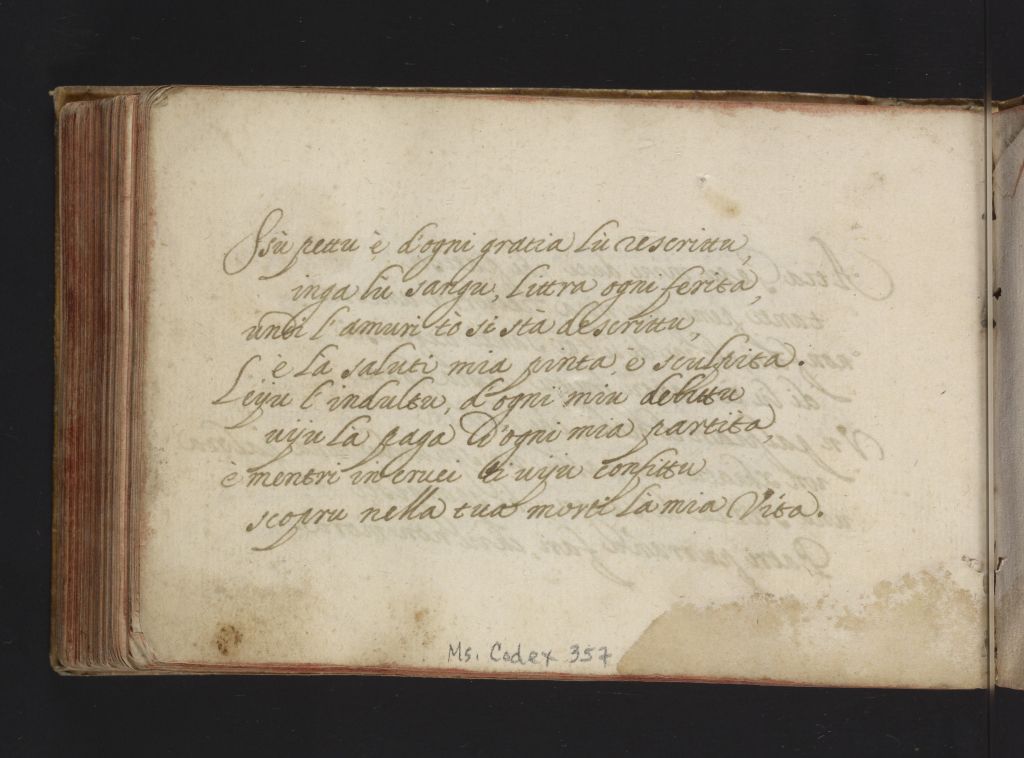 Ssù pettu è d'ogni gratia lù rescrittu,
inga lu sangu, littra ogni ferita,
undi l'amuri tò si stà descrittu,
è la saluti mia pinta, è sculpita.
Leiju l'indultu, d'ogni miu delittu
uiju la paga d'ogni mia partita,
è mentri in cruci ti uiju confittu
scopru nella tua morti la mia Vita.
Ms. Codex 357